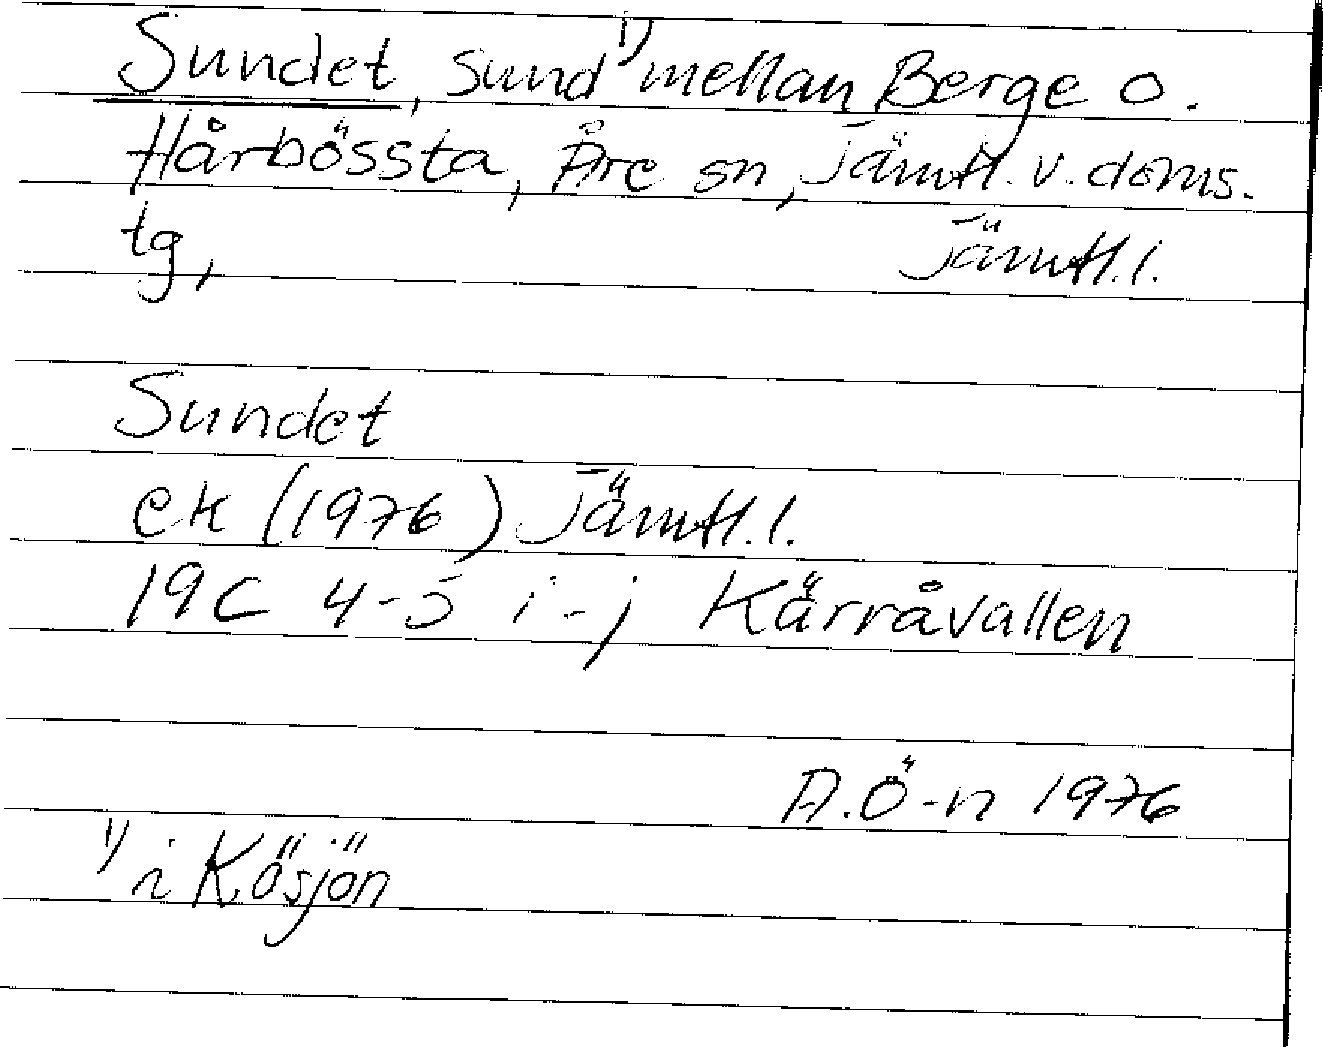 Sundet, sund ¹⁾ mellan Berge o.
Hårbössta, Åre sn, Jämtl. v. doms.
tg, Jämtl. l.
Sundet
ek (1976) Jämtl. l.
19C 4-5 i-j Kärråvallen
A.Ö-n 1976
¹⁾ i Kösjön